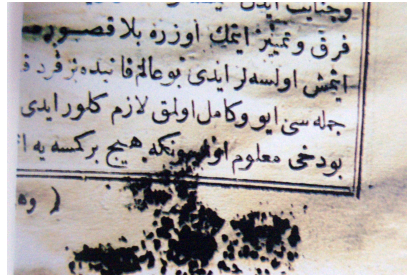 وجنايت ايدن
فرق وتمييز ايتمك اوزره بلا قصور
ايتمش اولسه لر ايدى بو عالم فانيده بر فرد
جمله سى ايو وكامل اولمق لازم كلور ايدى
بودخى معلوم اوله كه هيچ بر كمسه يه
( وه